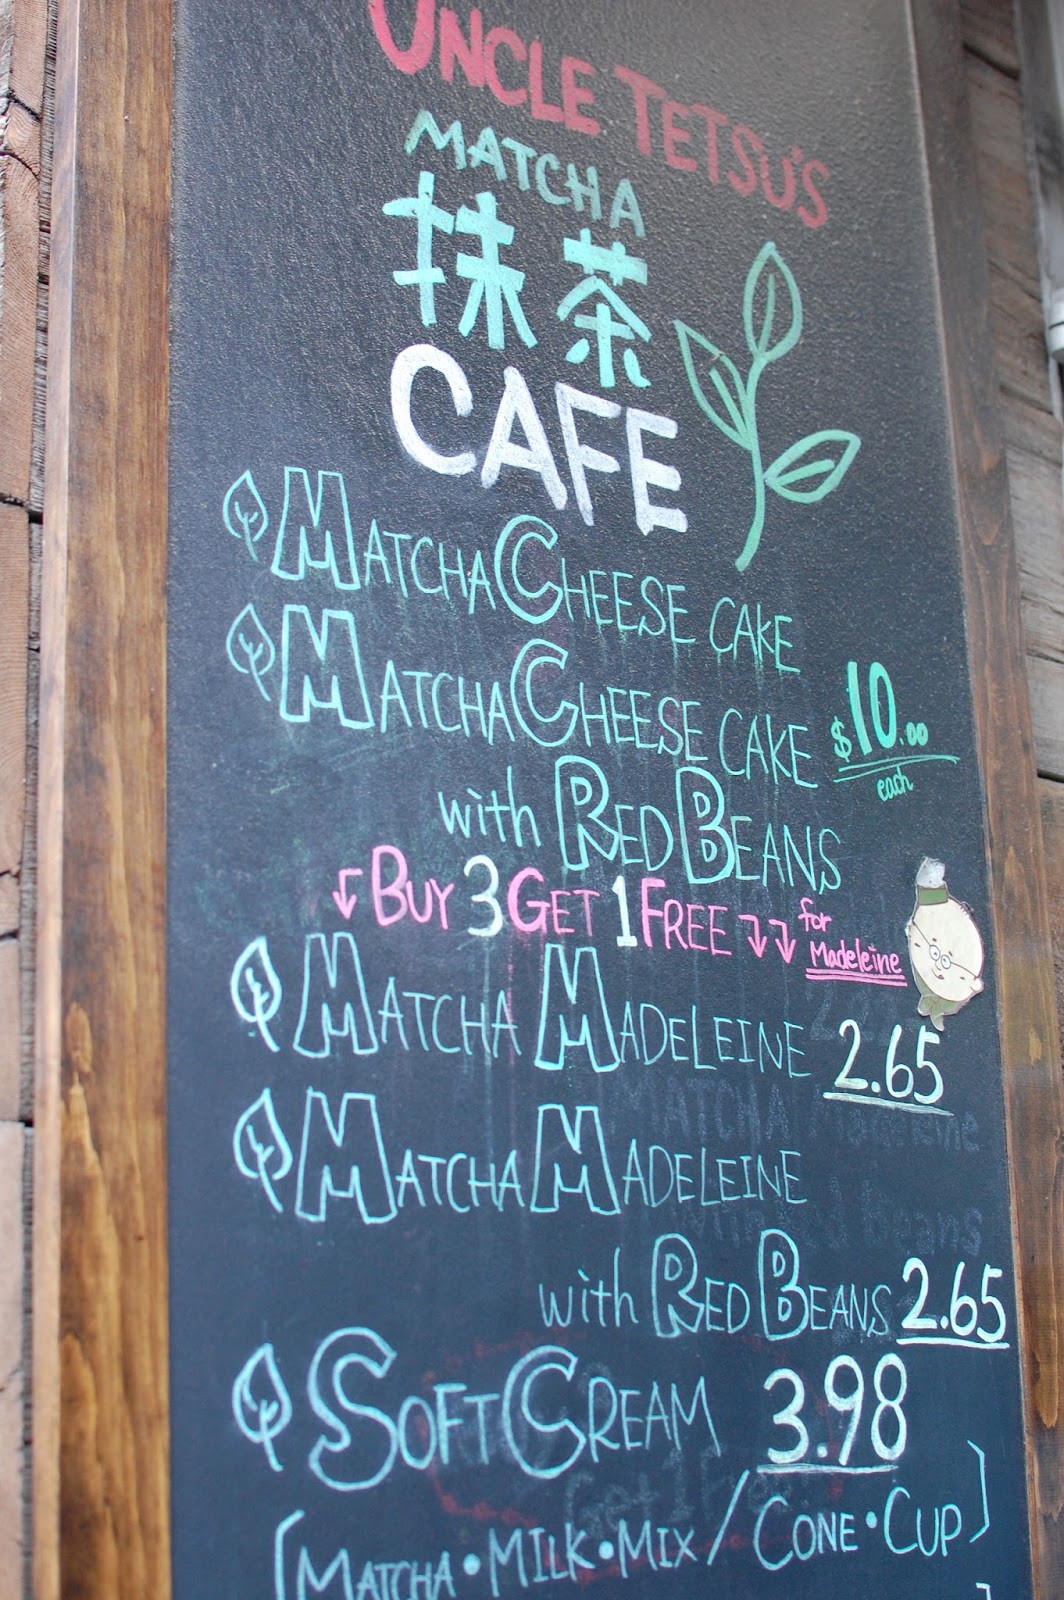 UNCLE TETSU'S
MATCHA
抹茶
CAFE
MATCHA CHEESE CAKE
MATCHA CHEESE CAKE $10.00
each
with RED BEANS
BUY 3 GET 1 FREE for
Madeleine
MATCHA MADELEINE 2.65
MATCHA MADELEINE
with RED BEANS 2.65
SOFT CREAM 3.98
[MATCHA • MILK • MIX / CONE • CUP]